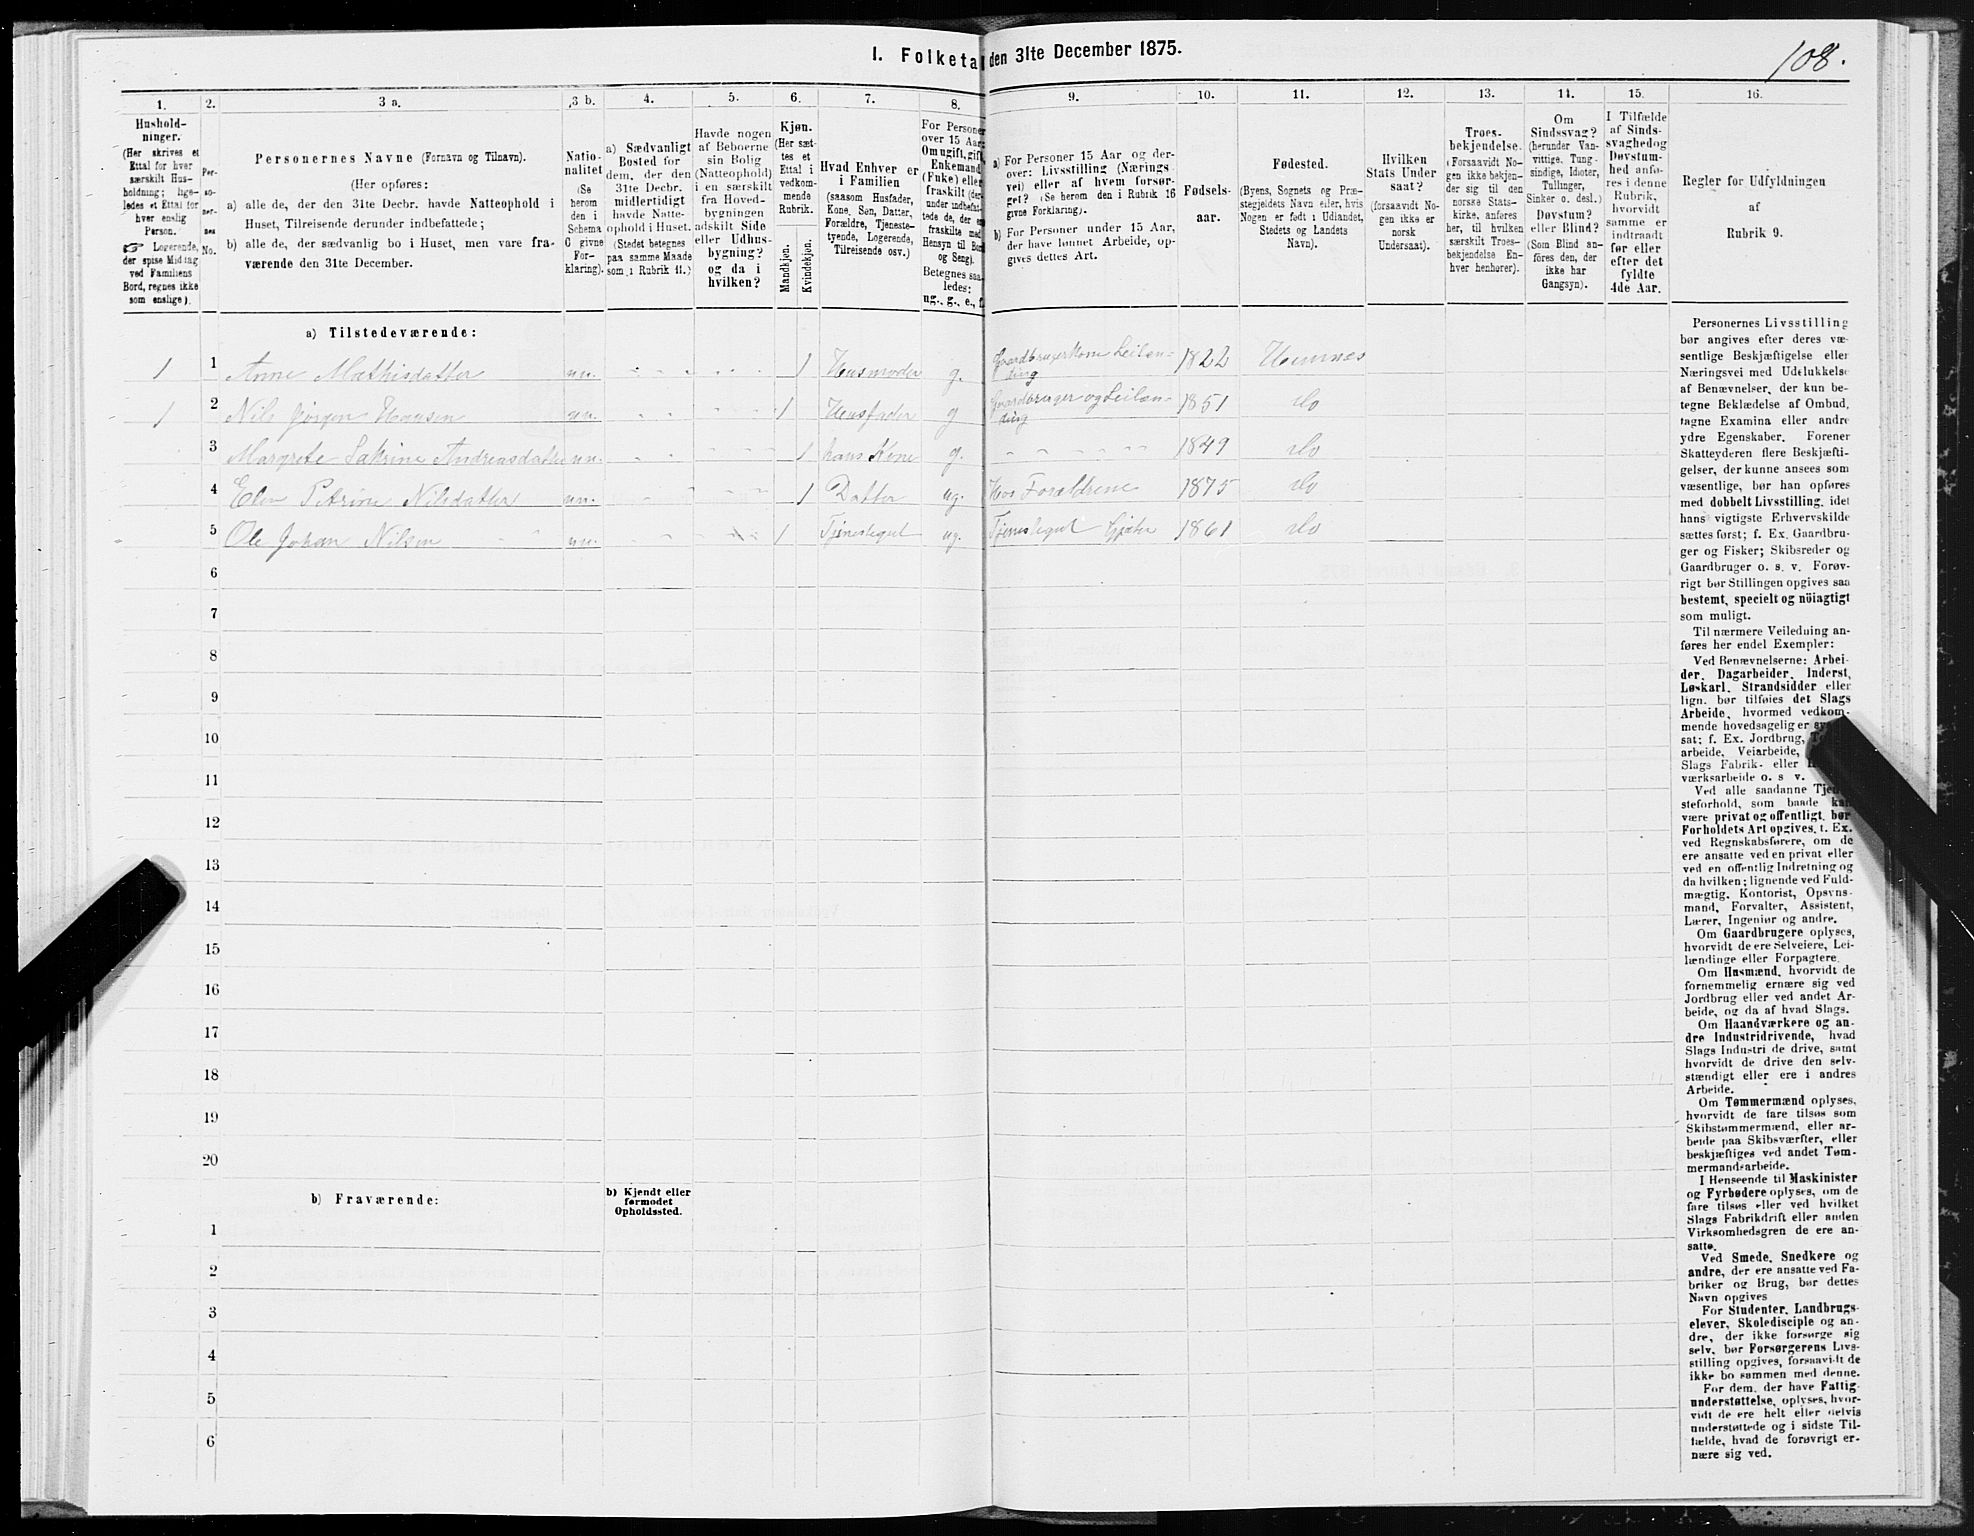 I. Folketa den 31te December 1875.
108.
1.
2.
3 a.
3 b.
4.
5.
6.
7.
8.
9.
10.
11.
12.
13.
14.
15.
16.
Hushold-
ninger.
(Her skrives et
Ettal for hver
særskilt Hus-
holdning; lige-
ledes et Ettal for
hver enslig
Person.
☞ Logerende,
der spise Middag
ved Familiens
Bord, regnes ikke
som enslige).
Per-
so-
ner-
nes
No.
Personernes Navne (Fornavn og Tilnavn).
(Her opføres:
a) alle de, der den 31te Decbr. havde Natteophold i
Huset, Tilreisende derunder indbefattede;
b) alle de, der sædvanlig bo i Huset, men vare fra-
værende den 31te December.
Natio-
nalitet
(Se
herom
den i
Schema
C givne
For-
klaring).
a) Sædvanligt
Bosted for
dem, der den
31te Decbr.
midlertidigt
havde Natte-
ophold i Huset.
(Stedet betegnes
paa samme Maade
som i Rubrik 11.)
Havde nogen
af Beboerne
sin Bolig
(Natteophold)
i en særskilt
fra Hoved-
bygningen
adskilt Side
eller Udhus-
bygning?
og da i
hvilken?
Kjøn.
(Her sæt-
tes et
Ettal i
vedkom-
mende
Rubrik.
Mandkjøn.
Kvindekjøn.
Hvad Enhver er
i Familien
(saasom Husfader,
Kone, Søn, Datter,
Forældre, Tjeneste-
tyende, Logerende,
Tilreisende osv.)
For Persone
over 15 Aar
Om ugift, gift,
Enkemand
(Fuke) eller
fraskilt (der-
under indbefat-
tede de, der ere
fraskilte med
Hensyn til Bord
og Seng).
Betegnes saa-
ledes:
ug., g., e., f.
a) For Personer 15 Aar og der-
over: Livsstilling (Nærings
vei) eller af hvem forsør-
get? (Se herom den i Rubrik 16
givne Forklaring).
b) For Personer under 15 Aar,
der have lønnet Arbeide, op-
gives dettes Art.
Fødsels-
aar.
Fødested.
(Byens, Sognets og Præ-
stegjeldets Navn eller, hvis
Nogen er født i Udlandet,
Stedets og Landets
Navn).
Hvilken
Stats Under
saat?
(forsaavidt No-
gen ikke er
norsk
Undersaat).
Troes-
bekjendelse.
(Forsaavidt No-
gen ikke bekjen-
der sig til den
norske Stats-
kirke, anføres
her, til hvilken
særskilt Troes-
bekjendelse En-
hver henhører).
Om
Sindssvag?
(herunder Van-
vittige, Tung-
sindige, Idioter,
Tullinger,
Sinker o. desl.)
Døvstum?
eller Blind?
(Som Blind an-
føres den, der
ikke har
Gangsyn).
I Tilfælde
af Sinds-
svaghed og
Døvstum-
hed anfø-
res i denne
Rubrik,
hvorvidt
samme er
indtraadt
før eller
efter det
fyldte
4de Aar.
Regler for Udfyldningen
af
Rubrik 9.
a) Tilstedeværende:
1 1 Anne Mathisdatter nn. 1 Husmoder g. Gaardbruger Kone Leilæn-
ding 1822 Hemnes
1 2 Nils Jørgen Hansen nn. 1 Husfader g Gaardbruger og Leilæn-
ding 1851 do
3 Margrete Sakrine Andreasdatter nn. 1 hans Kone g. 1849 do
4 Elen Petrine Nilsdatter nn. 1 Datter ug. Hos Forældrene 1875 do
5 Ole Johan Nilsen nn. 1 Tjenestegut ug. Tjenestegut Gjæter 1861 do
6
7
8
9
10
11
12
13
14
15
16
17
18
19
20
b) Fraværende:
b) Kjendt eller
formodet
Opholdssted.
1
2
3
4
5
6
Personernes Livsstilling
bør angives efter deres væ-
sentlige Beskjæftigelse eller
Næringsvei med Udelukkelse
af Benævnelser, der kun be-
tegne Beklædelse af Ombud,
tagne Examina eller andre
ydre Egenskaber. Forener
Skatteyderen flere Beskjæfti-
gelser, der kunne ansees som
væsentlige, bør han opføres
med dobbelt Livsstilling, idet
hans vigtigste Erhvervskilde
sættes først; f. Ex. Gaardbru-
ger og Fisker; Skibsreder og
Gaardbruger o. s. v. Forøv-
rigt bør Stillingen opgives saa
bestemt, specielt og nöiagtigt
som muligt.
Til nærmere Veiledning an-
føres her endel Exempler:
Ved Benævnelserne: Arbei-
der, Dagarbeider, Inderst,
Løskarl, Strandsidder eller
lign. bør tilføies det Slags
Arbeide, hvormed vedkom-
mende hovedsagelig er
sat; f. Ex. Jordbrug,
arbeide, Veiarbeide,
Slags Fabrik- eller
værksarbeide o. s v.
Ved alle saadanne
steforhold, som baade
være privat og offentligt, bør
Forholdets Art opgives, t. Ex.
ved Regnskabsførere, om de
ere ansatte ved en privat eller
ved en offentlig Indretning og
da hvilken; lignende ved Fuld-
mægtig, Kontorist, Opsyns-
mand, Forvalter, Assistent,
Lærer, Ingeniør og andre.
Om Gaardbrugere oplyses,
hvorvidt de ere Selveiere, Lei-
lændinge eller Forpagtere.
Om Husmænd, hvorvidt de
fornemmelig ernære sig ved
Jordbrug eller ved andet Ar-
beide, og da af hvad Slags.
Om Haandværkere og an-
dre Industridrivende, hvad
Slags Industri de drive, samt
hvorvidt de drive den selv-
stændigt eller ere i andres
Arbeide.
Om Tømmermænd oplyses,
hvorvidt de fare tilsøs som
Skibstømmermænd, eller ar-
beide paa Skibsværfter, eller
beskjæftiges ved andet Tøm-
mermandsarbeide.
I Henseende til Maskinister
og Fyrbødere oplyses, om de
fare tilsøs eller ved hvilket
Slags Fabrikdrift eller anden
Virksomhedsgren de ere an-
satte.
Ved Smede, Snedkere og
andre, der ere ansatte ved Fa-
briker og Brug, bør dettes
Navn opgives
For Studenter, Landbrugs-
elever, Skoledisciple og an-
dre, der ikke forsørge sig
selv, bør Forsørgerens Livs-
stilling opgives, forsaavidt de
ikke bo sammen med denne.
For dem, der have Fattig-
understøttelse, oplyses, hvor-
vidt de ere helt eller delvis
understøttede og i sidste Til-
fælde, hvad de forøvrigt er-
nære sig ved.